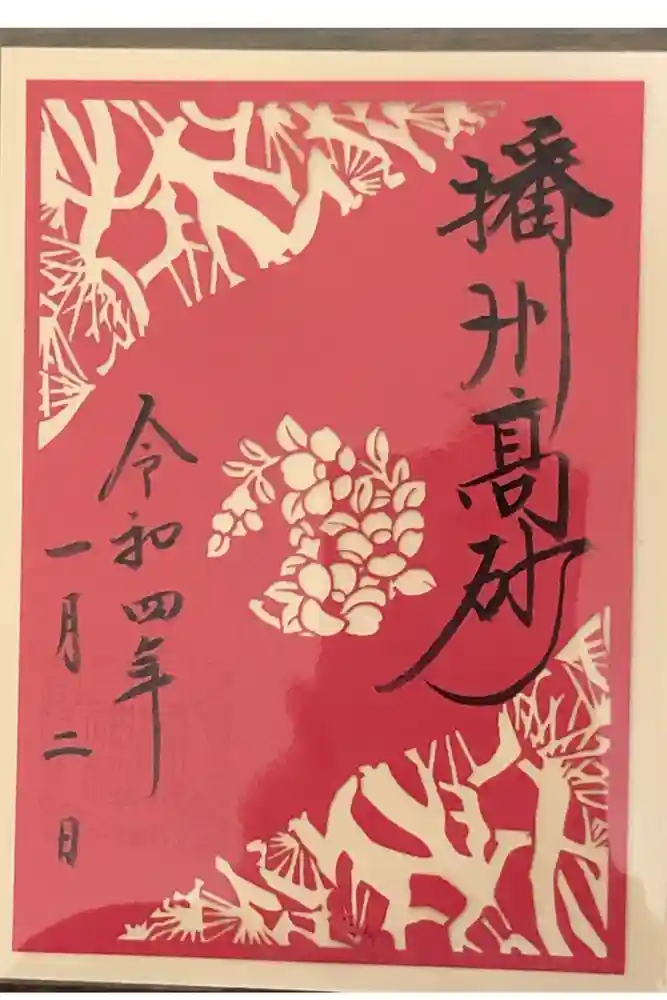 播州高砂
令和四年
一月二日